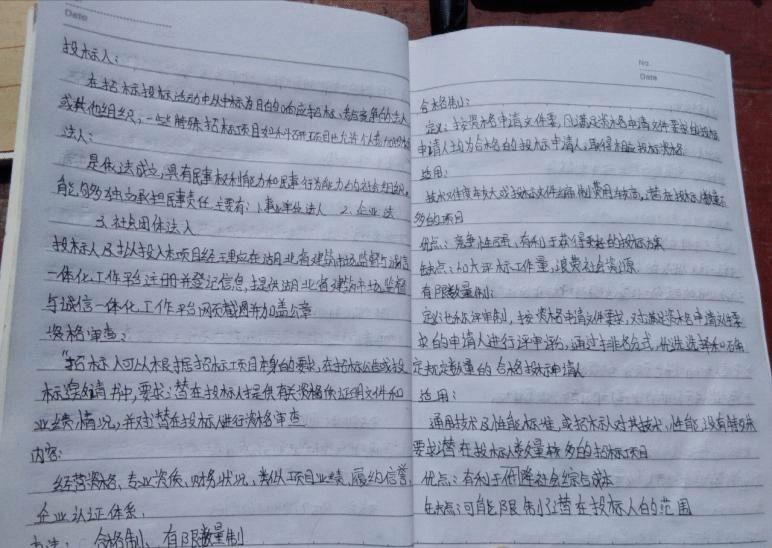 Date
投标人：
在招标投标活动中以中标为目的响应招标、参与竞争的法人
或其他组织，一些特殊招标项目如科研项目也允许个人参加投标
法人：
是依法成立，具有民事权利能力和民事行为能力的社会组织，
能够独立承担民事责任，主要有：1.事业单位法人 2.企业法
3.社会团体法人
投标人及拟投入本项目经理应在湖北省建筑市场监督与诚信
一体化工作平台注册并登记信息，提供湖北省建筑市场监督
与诚信一体化工作平台网页截图并加盖公章
资格审查：
"招标人可以根据招标项目本身的要求，在招标公告或投
标邀请书中，要求潜在投标人提供有关资格质证明文件和
业绩情况，并对潜在投标人进行资格审查
内容：
经营资格、专业资质、财务状况、类似项目业绩、履约信誉、
企业认证体系、
办法： 合格制、有限数量制
No.
Date
合格制：
定义：按资格申请文件要，凡满足资格申请文件要求的投标
申请人均为合格的投标申请人，取得相应投标资格
适用：
技术难度较大或投标文件编制费用较高，潜在投标人数量不
多的项目
优点：竞争性强，有利于获得更好的投标方案
缺点：加大评标工作量，浪费社会资源
有限数量制：
定义：也称评审制，按资格申请文件要求，对满足资格申请文件要
求的申请人进行评审评分，通过于非名公式，优选选择和确
定规定数量的合格投标申请人
适用：
通用技术及性能标准，或招标人对其技术、性能、没有特殊
要求，潜在投标人数量较多的招标项目
优点：有利于降低社会综合成本
缺点：可能限制了潜在投标人的范围